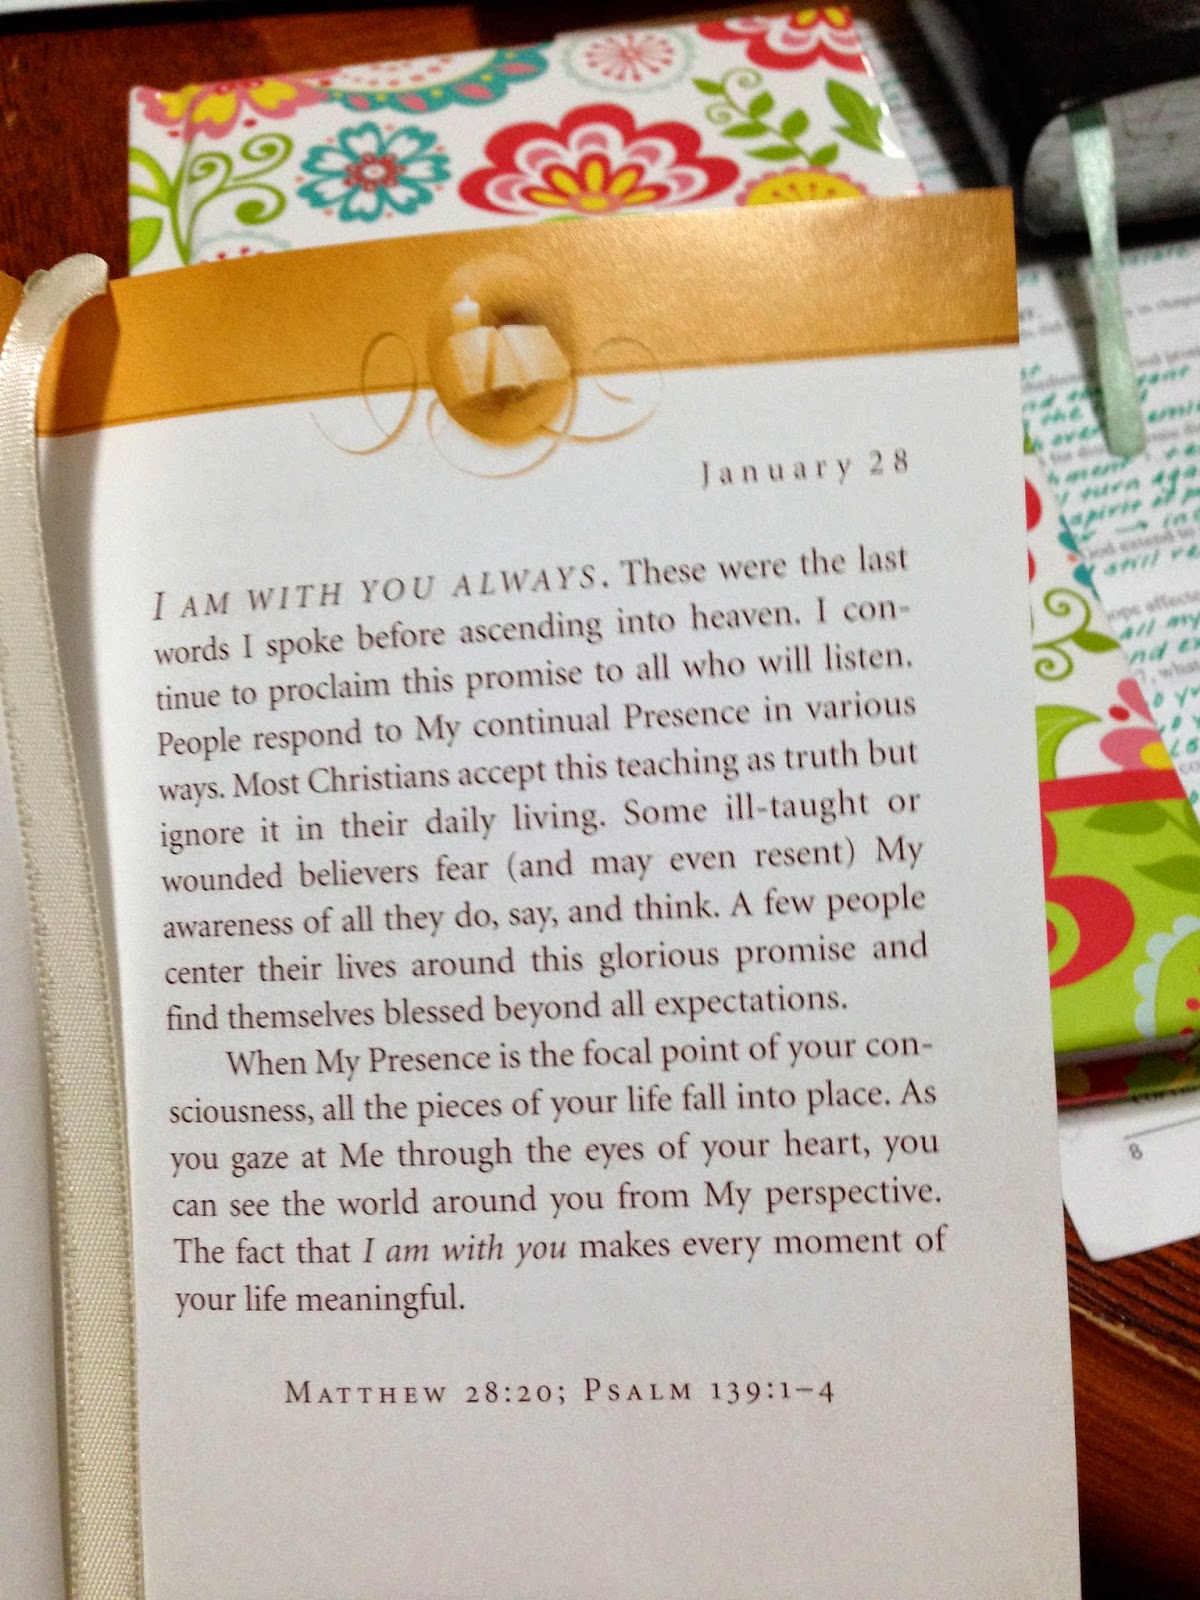 January 28
I AM WITH YOU ALWAYS. These were the last
words I spoke before ascending into heaven. I con-
tinue to proclaim this promise to all who will listen.
People respond to My continual Presence in various
ways. Most Christians accept this teaching as truth but
ignore it in their daily living. Some ill-taught or
wounded believers fear (and may even resent) My
awareness of all they do, say, and think. A few people
center their lives around this glorious promise and
find themselves blessed beyond all expectations.
When My Presence is the focal point of your con-
sciousness, all the pieces of your life fall into place. As
you gaze at Me through the eyes of your heart, you
can see the world around you from My perspective.
The fact that I am with you makes every moment of
your life meaningful.
MATTHEW 28:20; PSALM 139:1–4
turn again
spirit of
God extend to
still
hope affects
all my
8